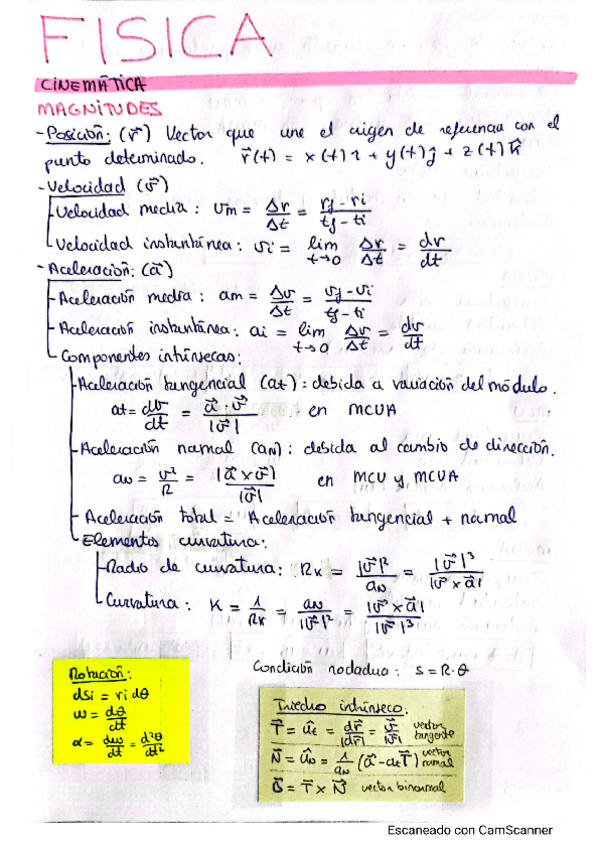 FISICA
CINEMÁTICA
MAGNITUDES
- Posición: (r⃗) Vector que une el origen de referencia con el
punto determinado. r⃗(t) = x(t)î + y(t)ĵ + z(t)k̂
- Velocidad (v⃗)
Velocidad media: vm = Δr/Δt = (rf - ri)/(tf - ti)
Velocidad instantánea: vi = lim t→0 Δr/Δt = dr/dt
- Aceleración: (a⃗)
Aceleración media: am = Δv/Δt = (vf - vi)/(tf - ti)
Aceleración instantánea: ai = lim t→0 Δv/Δt = dv/dt
Componentes intrínsecas:
Aceleración tangencial (at): debida a variación del módulo.
at = dv/dt = (a⃗ · v⃗)/|v⃗| en MCUA
Aceleración normal (aN): debida al cambio de dirección.
aN = v²/R = |a⃗ x v⃗|/|v⃗| en MCU y MCUA
Aceleración total = Aceleración tangencial + normal
Elementos curvatura:
Radio de curvatura: RK = |v⃗|²/aN = |v⃗|³/|v⃗ x a⃗|
Curvatura: K = 1/RK = aN/|v⃗|² = |v⃗ x a⃗|/|v⃗|³
Condición rodadura: S = R·θ
Rotación:
dsi = ri dθ
ω = dθ/dt
α = dω/dt = d²θ/dt²
Triedro intrínseco:
T⃗ = ût = dr⃗/|dr⃗| = v⃗/|v⃗| vector tangente
N⃗ = ûN = 1/aN (a⃗ - at T⃗) vector normal
B⃗ = T⃗ x N⃗ vector binormal
Escaneado con CamScanner